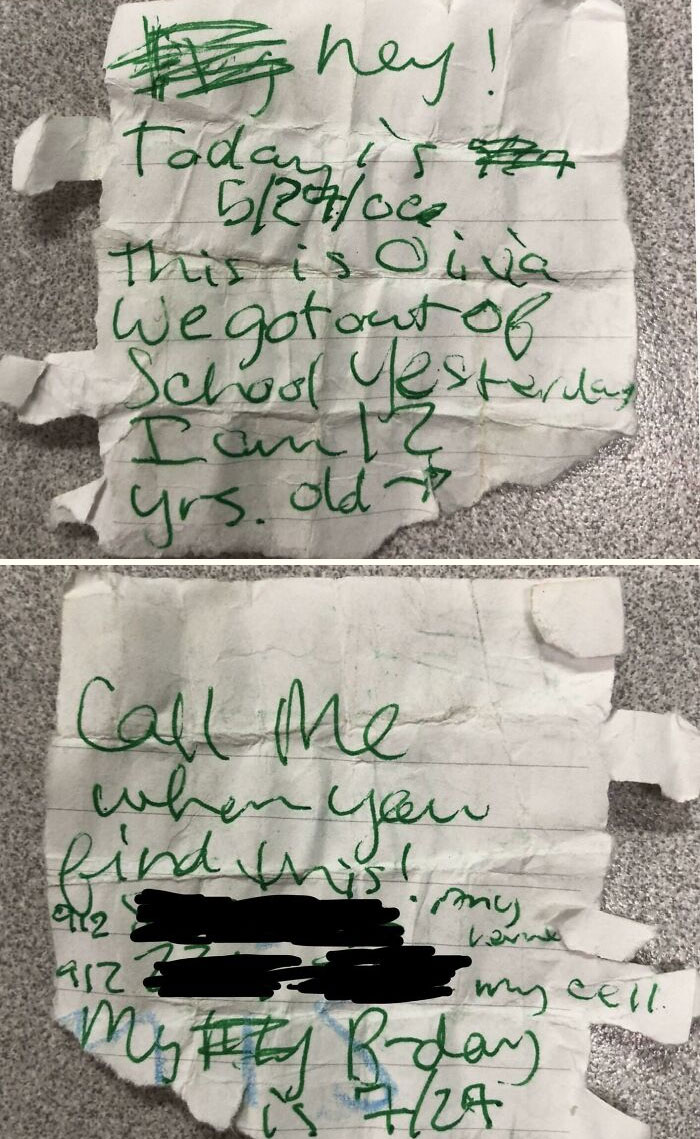 hey!
Today is
this is Olivia
We got out of
School yesterday
I am 12
yrs. old →
Call Me
when you
find this!
912
912 my cell
My B-day
is 7/24